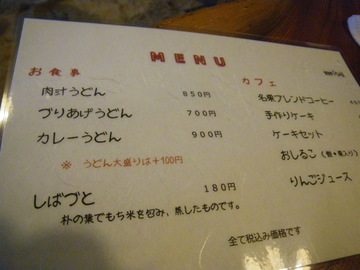 MENU
お食事
肉汁うどん 850円
づりあげうどん 700円
カレーうどん 900円
※ うどん大盛りは+100円
しばづと 180円
朴の葉でもち米を包み、蒸したものです。
カフェ
名栗ブレンドコーヒー
手作りケーキ
ケーキセット
おしるこ
りんごジュース
全て税込み価格です